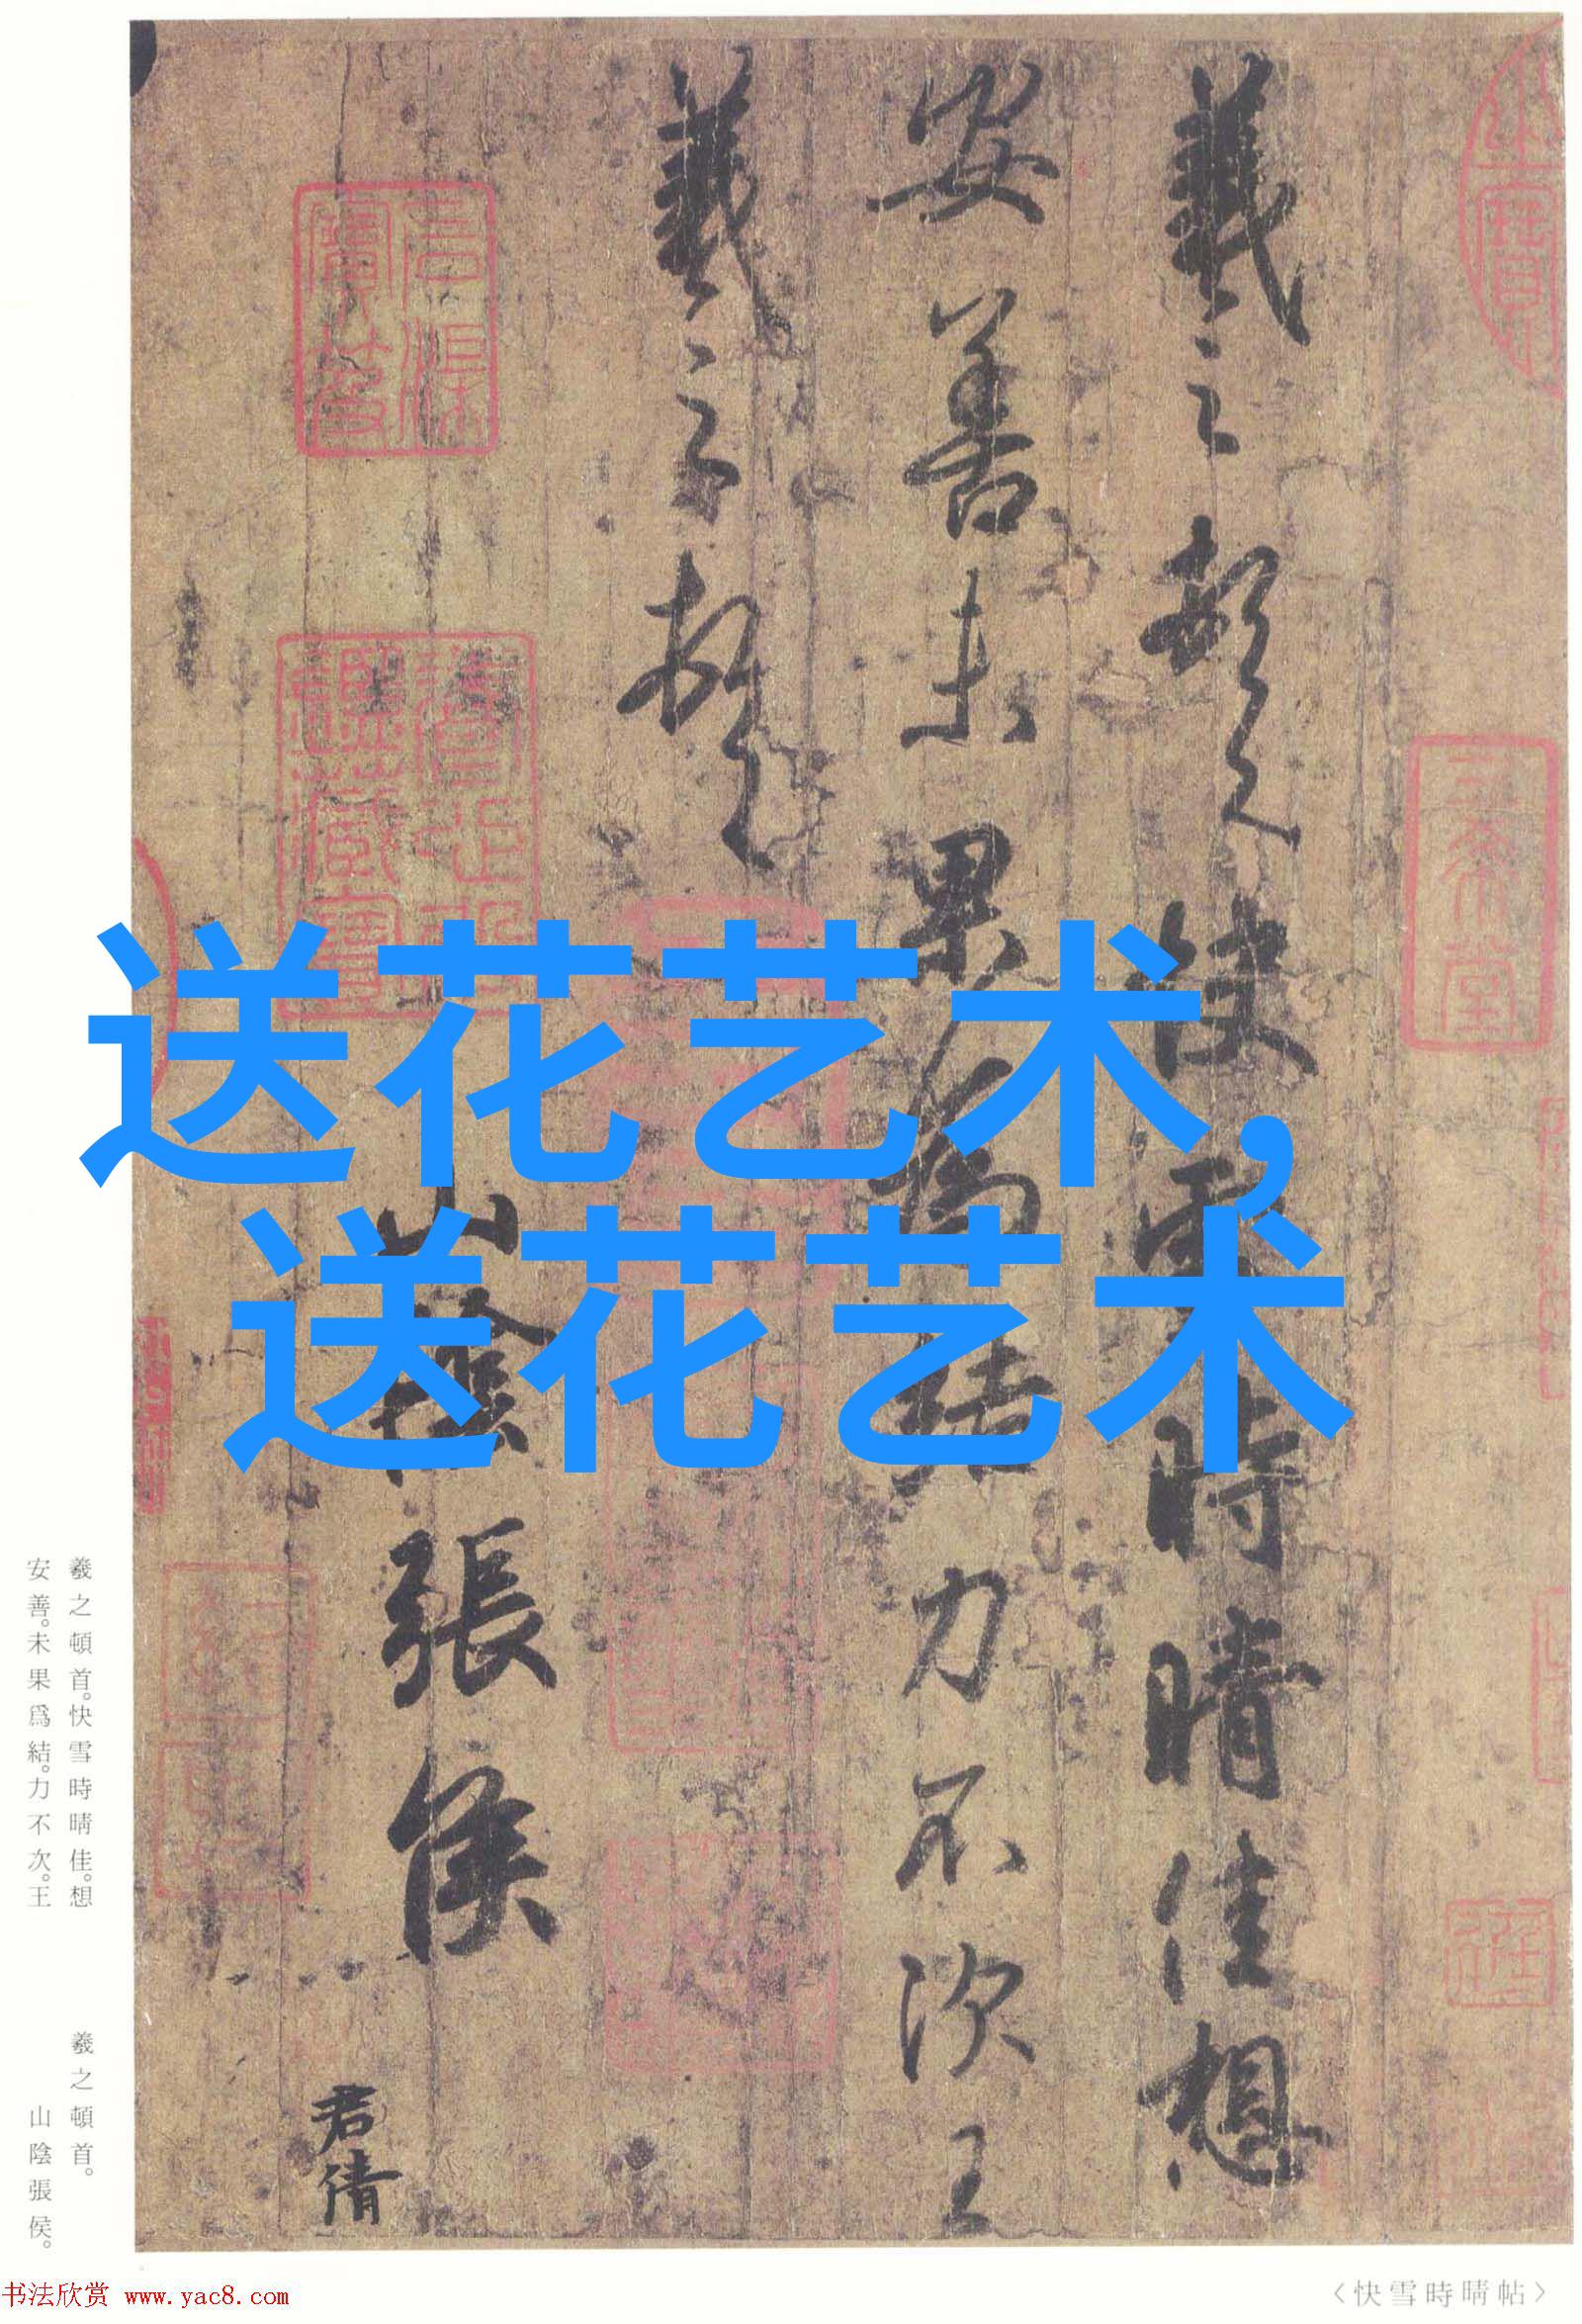 送花艺术,
送花艺术
羲之頓首快雪時晴佳想
安善未果為結力不次王
羲之頓首
山陰張侯
君倩
三希堂
羲之頓首。快雪時晴佳。想
安善。未果爲結。力不次。王
羲之頓首。
山陰張侯。
书法欣赏 www.yac8.com
〈快雪時晴帖〉